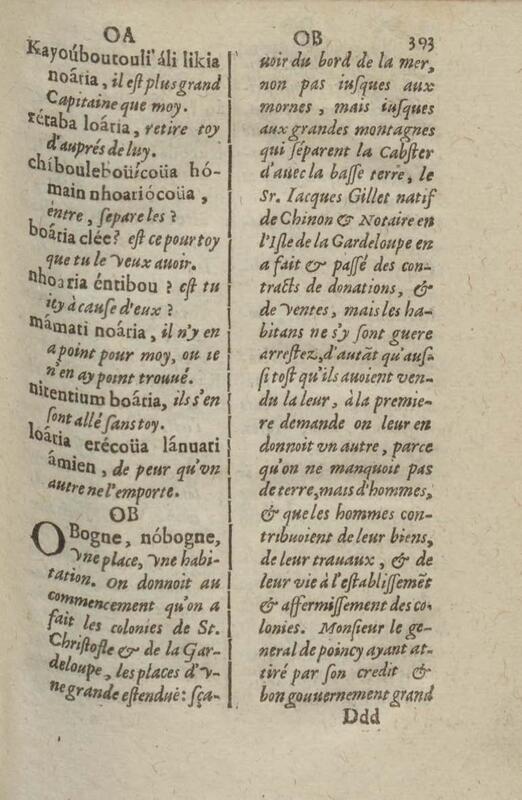 OA
Kayoúboutouli'áli likia
noária, il est plus grand
Capitaine que moy.
retaba loária, retire toy
d'auprés de luy.
chiboulebouïcoüa hó-
main nhoariócoüa,
entre, separe les ?
boária clée? est ce pour toy
que tu le veux auoir.
nhoaria éntibou ? es tu
icy à cause d'eux ?
mámati noária, il n'y en
a point pour moy, ou ie
n'en ay point trouué.
nitentium boária, ils s'en
sont allé sans toy.
loária erécoüa lánuati
ámien, de peur qu'vn
autre ne l'emporte.
OB
OBogne, nóbogne,
vne place, vne habi-
tation. On donnoit au
commencement qu'on a
fait les colonies de St.
Christofle & de la Gar-
deloupe, les places d'v-
ne grande estenduë: sça-
OB 393
uoir du bord de la mer,
non pas iusques aux
mornes, mais iusques
aux grandes montagnes
qui séparent la Cabster
d'auec la basse terre, le
Sr. Iacques Gillet natif
de Chinon & Notaire en
l'Isle de la Gardeloupe en
a fait & passé des con-
tracts de donations, &
de ventes, mais les ha-
bitans ne s'y sont guere
arrestez, d'autãt qu'aus-
si tost qu'ils auoient ven-
du la leur, à la premie-
re demande on leur en
donnoit vn autre, parce
qu'on ne manquoit pas
de terre, mais d'hommes,
& que les hommes con-
tribuoient de leur biens,
de leur trauaux, & de
leur vie à l'establissemẽt
& affermissement des co-
lonies. Monsieur le ge-
neral de poincy ayant at-
tiré par son credit &
bon gouuernement grand
Ddd